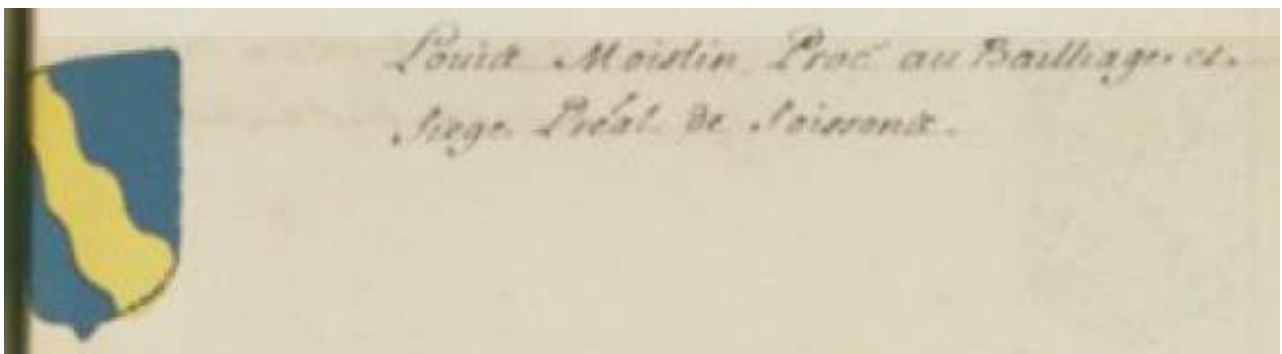 Louis Moistin, Proc.r au Bailliage et
Siege Préal de Soissons.